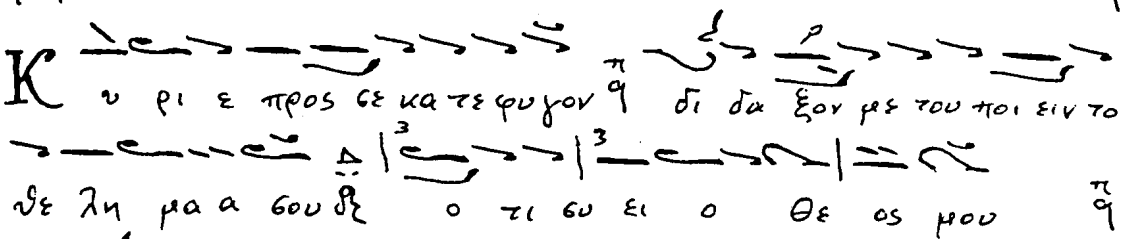 Κυ ρι ε προς σε κα τε φυ γον π q δι δα ξον με του ποι ειν το
θε λη μα α σου Δ ο τι συ ει ο Θε ος μου π q